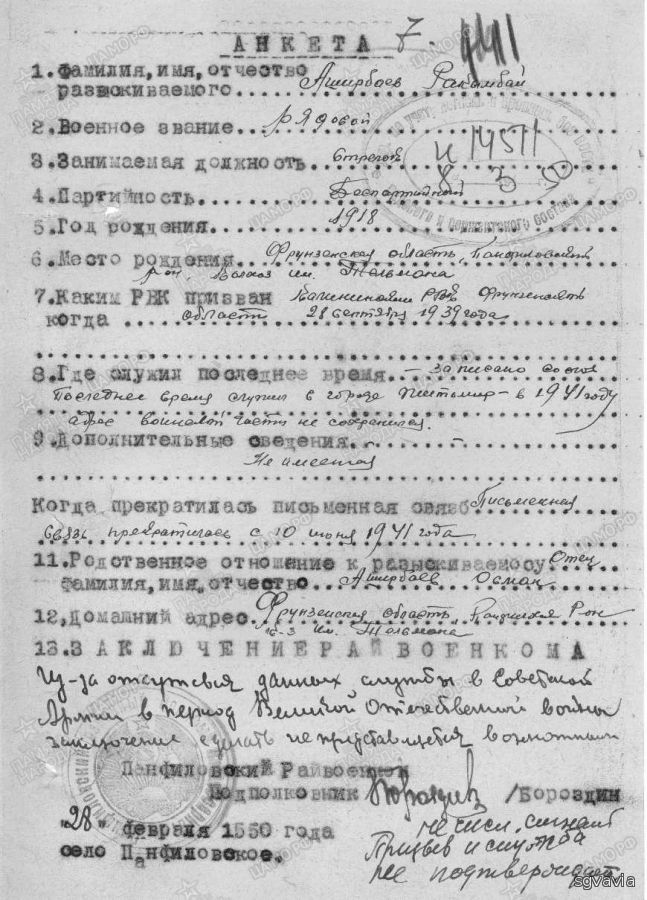 АНКЕТА 7.
1. Фамилия, имя, отчество
разыскиваемого... Аширбаев Ракымбай
2. Военное звание.. рядовой
И 14511
3. Занимаемая должность.. стрелок
8 3
4. Партийность... Беспартийный
5. Год рождения.. 1918
6. Место рождения. Фрунзенская область, Панфиловский
р-он, колхоз им. Тельмана
7. Каким РВК призван Калининским РВК Фрунзенской
когда области 28 сентября 1939 года
8. Где служил последнее время. - записано со слов
Последнее время служил в городе Житомир - в 1941 году
адрес воинской части не сохранился.
9. Дополнительные сведения.. -
Не имеется
Когда прекратилась письменная связь Письменная
связь прекратилась с 10 июня 1941 года
11. Родственное отношение к разыскиваемосу Отец
фамилия, имя, отчество. Аширбаев Осман
12, Домашний адрес Фрунзенская область, Р-он
к-з им. Тельмана
13. ЗАКЛЮЧЕНИЕ РАЙВОЕНКОМА
Из-за отсутствия данных службы в Советской
Армии в период Великой Отечественной войны
заключение сделать не представляется возможным
Панфиловский Райвоенком
Подполковник /Бороздин
"28" февраля 1550 года
село Панфиловское.
Призыв и служба
не подтверждает
sgvavia